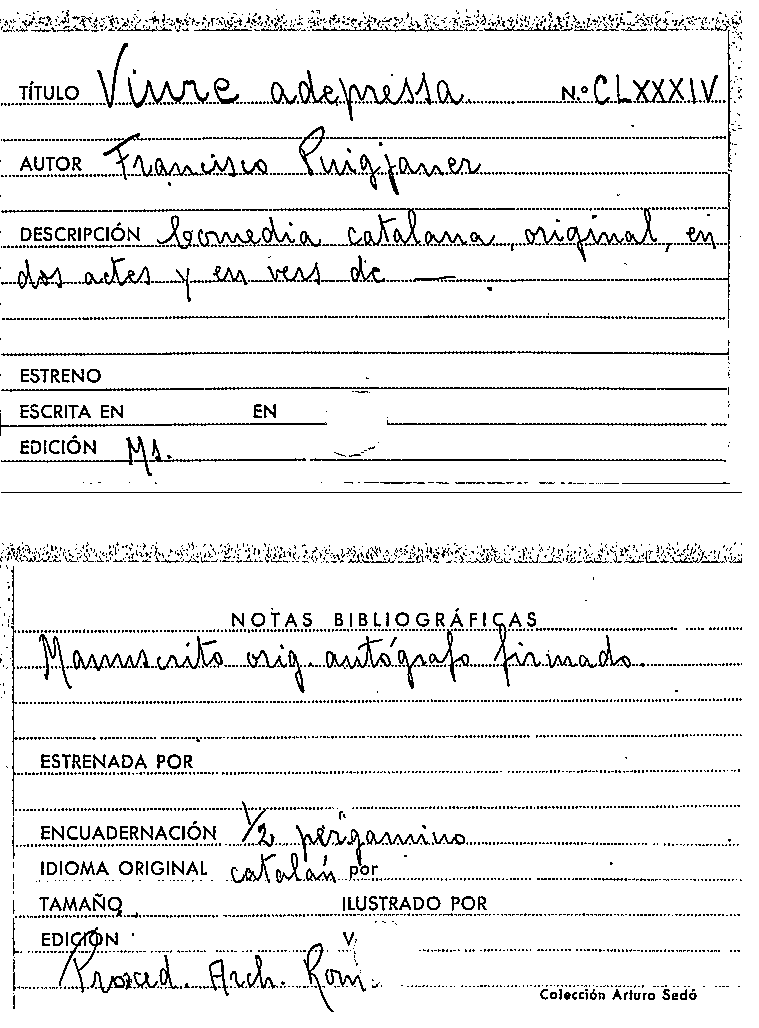 TÍTULO Viure adepressa. N.º CLXXXIV
AUTOR Francisco Puigjaner
DESCRIPCIÓN Comedia catalana, original, en
dos actes y en vers de —.
ESTRENO
ESCRITA EN EN
EDICIÓN Ms.
NOTAS BIBLIOGRÁFICAS
Manuscrito orig. autógrafo firmado.
ESTRENADA POR
ENCUADERNACIÓN 1/2 pergamino
IDIOMA ORIGINAL catalán por
TAMAÑO ILUSTRADO POR
EDICIÓN V
Proced. Arch. Rom.
Colección Arturo Sedó